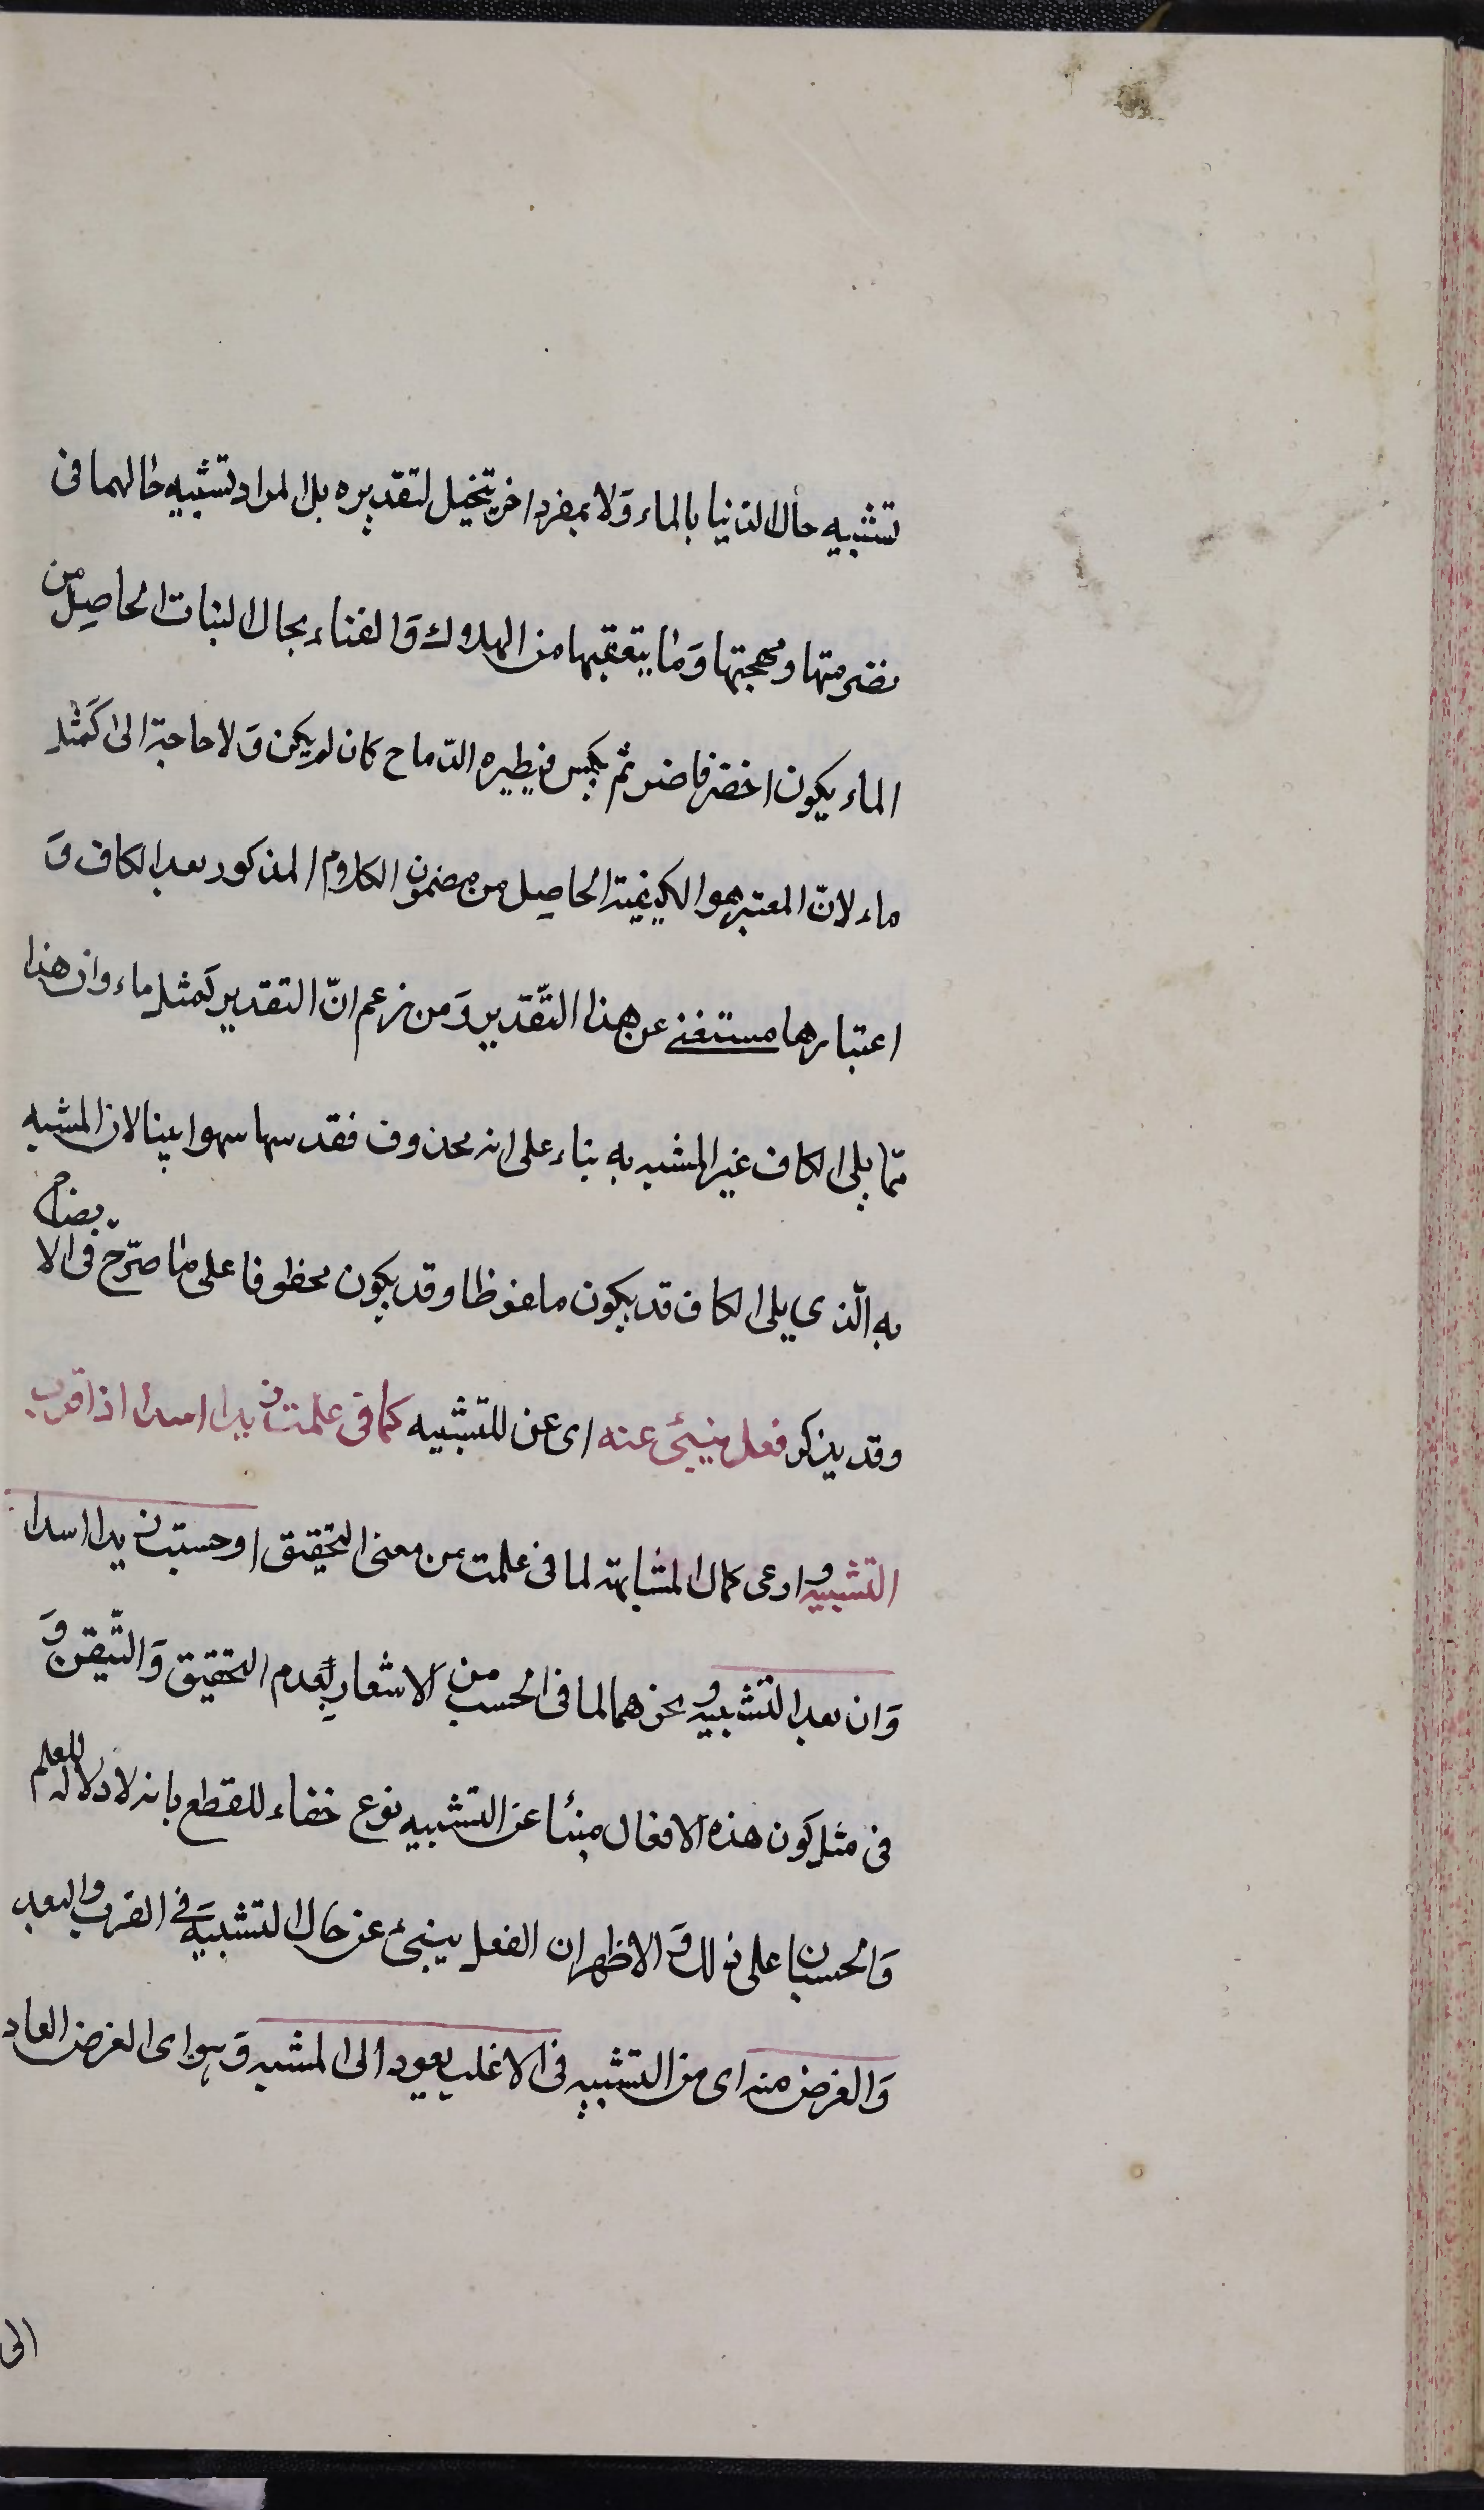 تشبيه حال الدنيا بالماء وَلا بمفرد اخر يتخيل لتقديره بل المراد تشبيه حالها فى
نضرمتها ومهجتها وَما يتعقبها من الهلاك وَالفناء بحال النبات الحاصل من
الماء يكون اخضر فاضر ثم يكبس فيطيره الدّماح كان لم يكن وَلا حاجة الى كَمَثل
ماء لانّ المعتبر هو الكيفية الحاصل من مضمون الكلام المذكور بعد الكاف وَ
اعتبارها مستغنى عن هذا التّقدير وَمن زعم انّ التقدير كمثل ماء وان هذا
ممّا يلى الكاف غير المشبه به بناء على انه محذوف فقد سها سهوا بينا لان المشبه
به الّذى يلى الكاف قد يكون ملفوظا وقد يكون محظوفا على ما صرّح فى الا
يضاح
وقد يذكر فعل ينبئ عنه اى عن للتّشبيه كما فى علمت زيدا اسدا اذا قرب
التشبيه و ادعى كمال المشابهة لما فى علمت من معنى التحقيق او حسبت زيدا اسدا
وَان بعد التشبيه و نحوهما لما فى الحسب من الاشعار بعدم التحقيق وَالتّيقن وَ
فى مثل كون هذه الافعال منبئا عن التشبيه نوع خفاء للقطع بانه لا دلالة للعلم
وَالحسبان على ذلك وَ الاظهر ان الفعل ينبئ عن حال التشبيه فى القرب والبعد
وَالغرض منه اى من التشبيه فى الاغلب يعود الى المشبه وَهو اى الغرض العاد
الى